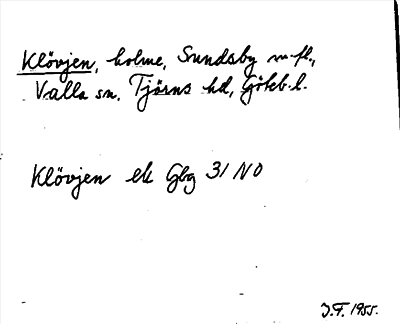 Klövjen, holme, Sundsby m.fl.,
Valla sn, Tjörns hd, Göteb.l.
Klövjen ek Gbg 31 NO
J.F. 1955.